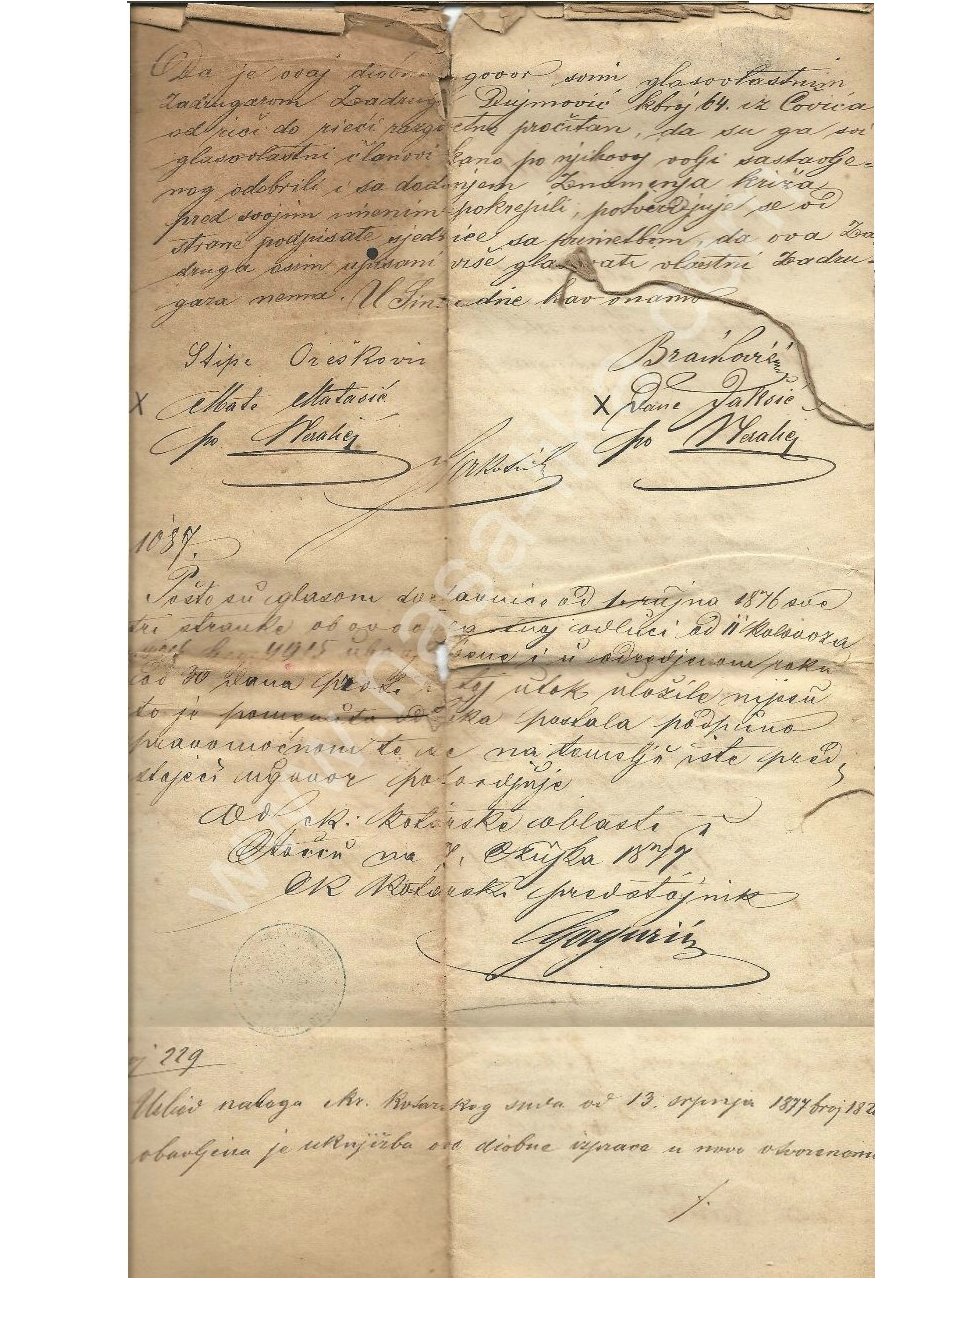 Da je ovaj diobni govor svim glasovlastnim
zadrugarom Zadruge Dujmović kbroj 64. iz Čovića
od rieči do rieči razgovetno pročitan, da su ga svi
glasovlastni članovi kano po njihovoj volji sastavlje-
nog odobrili i sa dodanjem Znamenja križa
pred svojim imenim pokrepili, potverdjuje se od
strane podpisate sjednice sa primetbom, da ova Za
druga osim upisani više glasovati vlastni Zadru-
gara nema. U Sincu dne kao onamo
Stipe Orešković
Brajković
X Mate Matasić
X Dane Jakšić
po
po
1037.
Pošto su glasom dostavnice od rujna 1876 sve
tri stranke ob ovoj odluci od 11 kolovoza
4915 i u odredjenom roku
od 30 dana utok uložile nijesu
to je odluka postala podpuno
pravomoćnom te se na temelju iste pred
stojeći ugovor potvrdjuje
Od ck: kotarske oblasti
Otočcu na 7. Ožujka 1877
CK Kotarski predstojnik
229
Uslied naloga Kr. Kotarskog suda od 13. srpnja 1877 broj 182
obavljena je uknjižba ove diobne izprave u novo otvorenom
www.nasa-lika.com